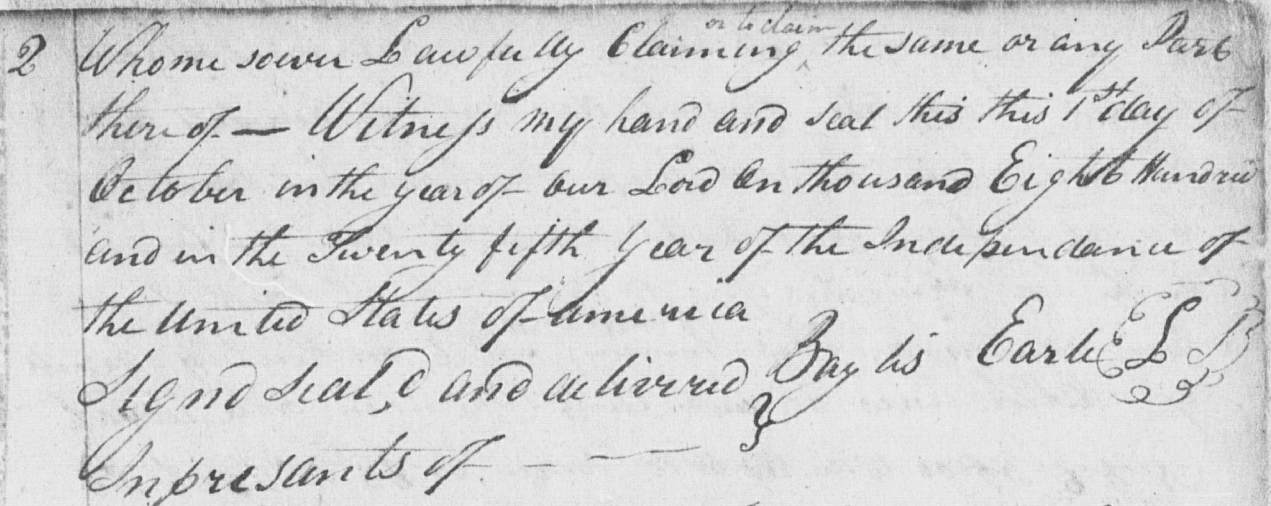 2 Whome soever Lawfully Claiming or to claim the same or any Part
there of — Witness my hand and seal this this 1st day of
October in the year of our Lord On thousand Eight Hundred
and in the Twenty fifth Year of the Independance of
the United States of america
Signd Seal,d and delivered Baylis Earle L S
In presants of —